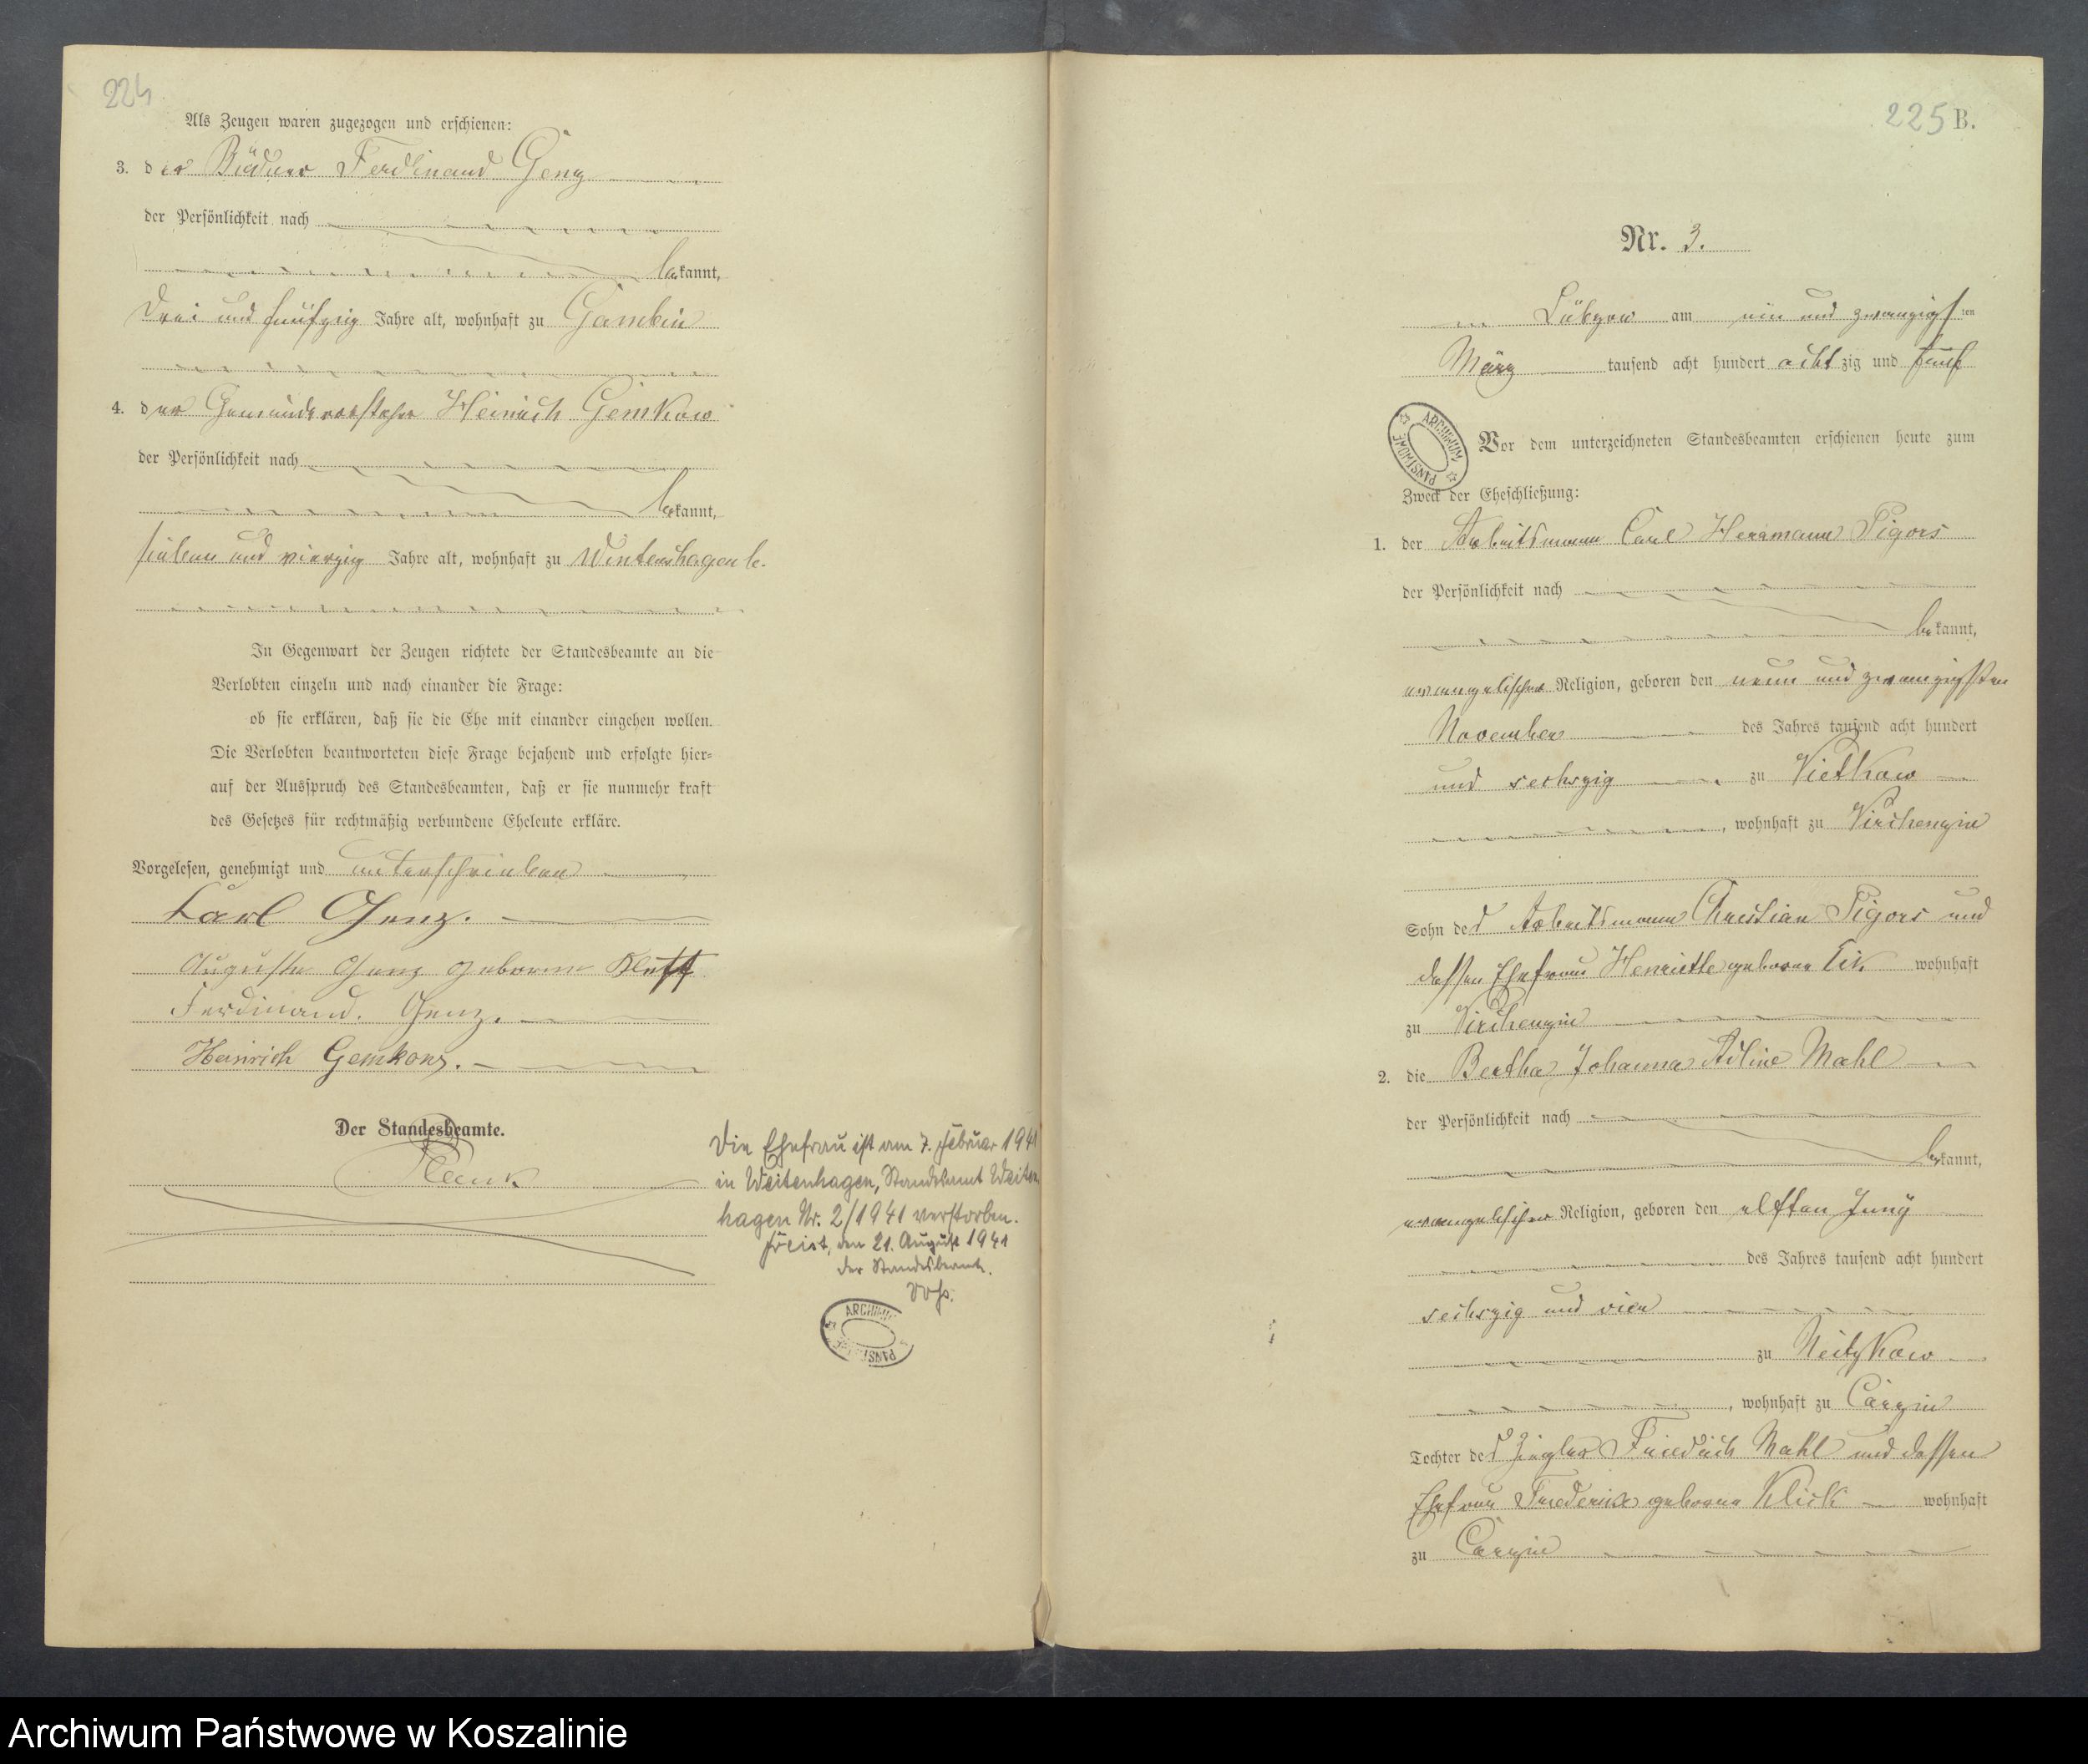 224
Als Zeugen waren zugezogen und erschienen:
3. der Büdner Ferdinand Genz
der Persönlichkeit nach
bekannt,
drei und fünfzig Jahre alt, wohnhaft zu Gambin
4. der Gemeindevorsteher Heinrich Gemkow
der Persönlichkeit nach
bekannt,
sieben und vierzig Jahre alt, wohnhaft zu Wintershagen b.
In Gegenwart der Zeugen richtete der Standesbeamte an die
Verlobten einzeln und nach einander die Frage:
ob sie erklären, daß sie die Ehe mit einander eingehen wollen.
Die Verlobten beantworteten diese Frage bejahend und erfolgte hier-
auf der Ausspruch des Standesbeamten, daß er sie nunmehr kraft
des Gesetzes für rechtmäßig verbundene Eheleute erkläre.
Vorgelesen, genehmigt und unterschrieben
Karl Genz.
Auguste Genz geborene
Ferdinand. Genz.
Heinrich Gemkow.
Der Standesbeamte.
Die Ehefrau ist am 7. Februar 1941
in Weitenhagen, Standesamt Weiten
hagen Nr. 2/1941 verstorben.
Freist, den 21. August 1941
der Standesbeamte.
ARCHIWUM PAŃSTWOWE
225 B.
Nr. 3.
Lübzow am ein und zwanzigsten
März tausend acht hundert achtzig und fünf
ARCHIWUM PAŃSTWOWE
Vor dem unterzeichneten Standesbeamten erschienen heute zum
Zweck der Eheschließung:
1. der Arbeitsmann Carl Herrmann Pigors
der Persönlichkeit nach
bekannt,
evangelischer Religion, geboren den neun und zwanzigsten
November des Jahres tausend acht hundert
und sechszig zu Vietkow
, wohnhaft zu Virchenzin
Sohn des Arbeitsmann Christian Pigors und
dessen Ehefrau Henriette geborene wohnhaft
zu Virchenzin
2. die Bertha Johanna Adline Mahl
der Persönlichkeit nach
bekannt,
evangelischer Religion, geboren den elften Juny
des Jahres tausend acht hundert
sechszig und vier
zu Neitzkow
, wohnhaft zu Carzin
Tochter des Ziegler Friedrich Mahl und dessen
Ehefrau Friederike geborene Klick wohnhaft
zu Carzin
Archiwum Państwowe w Koszalinie